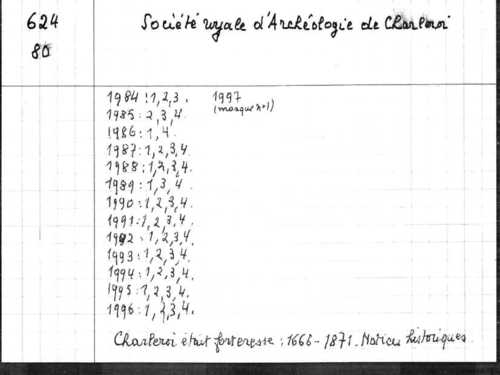 624 Société royale d'Archéologie de Charleroi
80
1984 : 1, 2, 3. 1997
(manque n°1)
1985 : 2, 3, 4.
1986 : 1, 4.
1987 : 1, 2, 3, 4.
1988 : 1, 2, 3, 4.
1989 : 1, 3, 4.
1990 : 1, 2, 3, 4.
1991 : 1, 2, 3, 4.
1992 : 1, 2, 3, 4.
1993 : 1, 2, 3, 4.
1994 : 1, 2, 3, 4.
1995 : 1, 2, 3, 4.
1996 : 1, 2, 3, 4.
Charleroi était forteresse : 1666 - 1871. Notices historiques.